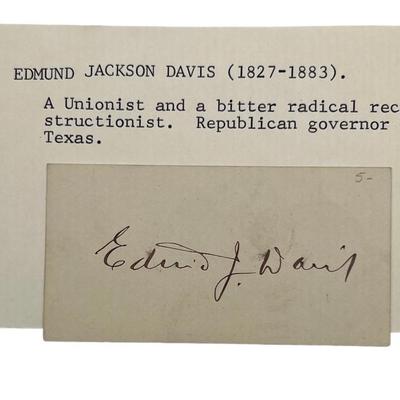 EDMUND JACKSON DAVIS (1827-1883).
A Unionist and a bitter radical rec
structionist. Republican governor
Texas.
5-
Edmd J. Davis